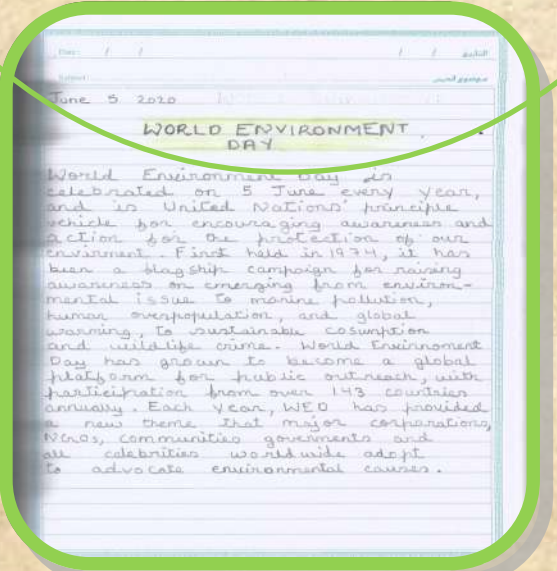 Date: / / / / التاريخ
Subject: موضوع الدرس
June 5 2020
WORLD ENVIRONMENT
DAY
World Environment Day is
celebrated on 5 June every year,
and is United Nations' principle
vehicle for encouraging awareness and
action for the protection of our
envirment. First held in 1974, it has
been a flag ship campaign for raising
awareness on emerging from environ-
mental issue to marine pollution,
human overpopulation, and global
warming, to sustainable cosumption
and wildlife crime. World Envirnoment
Day has grown to become a global
platform for public outreach, with
participation from over 143 countries
annually. Each year, WED has provided
a new theme that major corporations,
NGOs, communities goverments and
all celebrities world wide adopt
to advocate environmental causes.